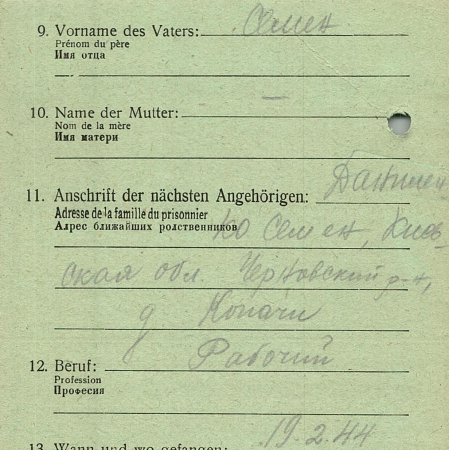 9. Vorname des Vaters: Семен
Prénom du père
Имя отца
10. Name der Mutter: —
Nom de la mère
Имя матери
11. Anschrift der nächsten Angehörigen:
Adresse de la famille du prisonnier
Алрес ближайших ролственников ко Семен, Киев-
ская обл. р-н,
д. Копачи
12. Beruf: Рабочий
Profession
Професия
13. Wann und wo gefangen: 19.2.44